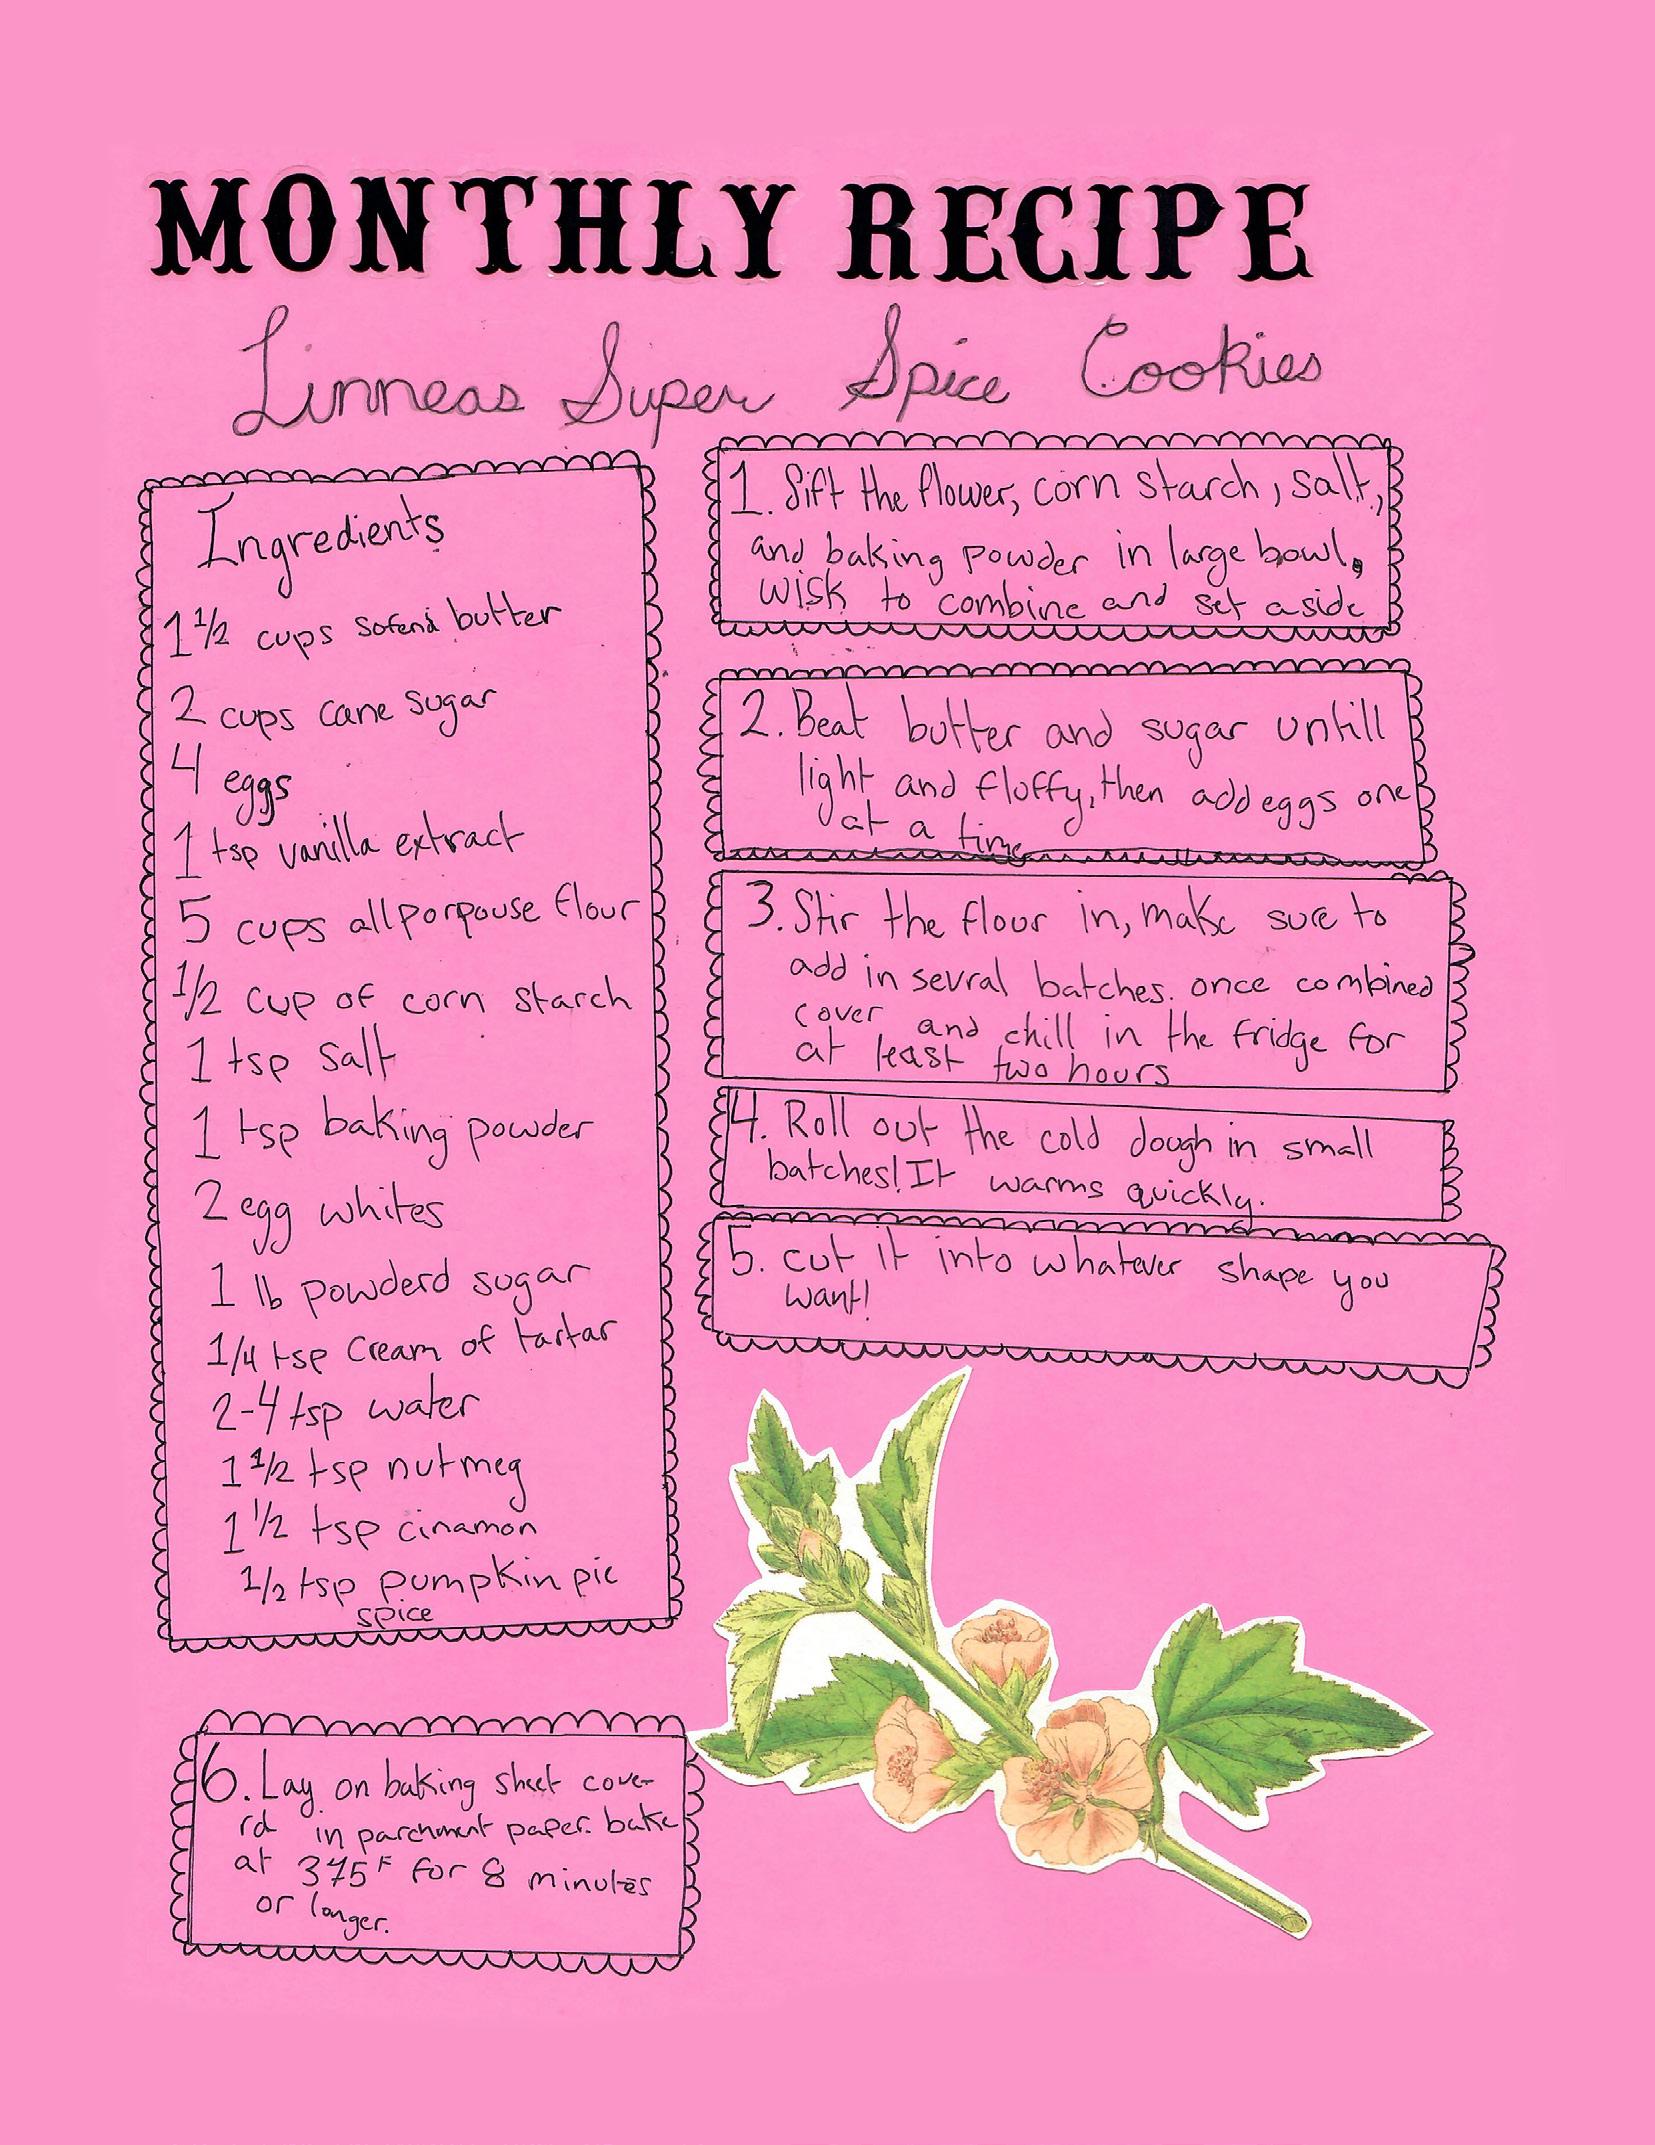 MONTHLY RECIPE
Linneas Super Spice Cookies
Ingredients
1 1/2 cups sofend butter
2 cups cane sugar
4 eggs
1 tsp vanilla extract
5 cups all porpouse flour
1/2 cup of corn starch
1 tsp salt
1 tsp baking powder
2 egg whites
1 lb powderd sugar
1/4 tsp cream of tartar
2-4 tsp water
1 1/2 tsp nutmeg
1 1/2 tsp cinamon
1/2 tsp pumpkin pie
spice
1. Sift the flower, corn starch, salt,
and baking powder in large bowl,
wisk to combine and set aside
2. Beat butter and sugar untill
light and floffy, then add eggs one
at a time
3. Stir the flour in, make sure to
add in sevral batches. once combined
cover and chill in the fridge for
at least two hours
4. Roll out the cold dough in small
batches! It warms quickly.
5. cut it into whatever shape you
want!
6. Lay on baking sheet cove-
rd in parchment paper. bake
at 375F for 8 minutes
or longer.